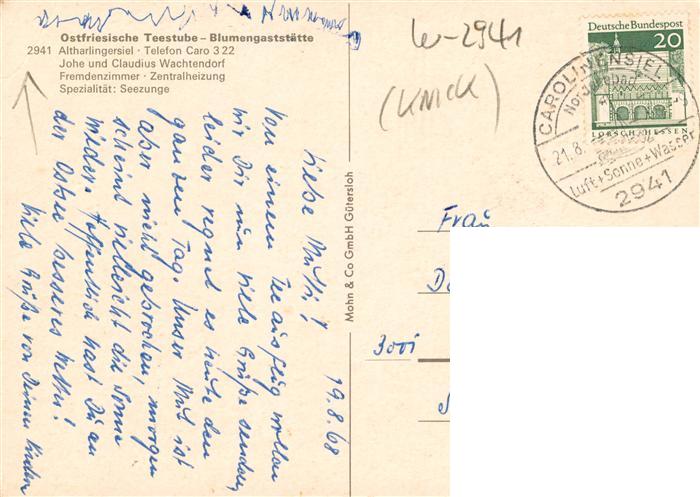 Ostfriesische Teestube – Blumengaststätte
2941 Altharlingersiel · Telefon Caro 3 22
Johe und Claudius Wachtendorf
Fremdenzimmer · Zentralheizung
Spezialität: Seezunge
19.8.68
Liebe Mutti!
Von einem Teeausflug wollen
wir Dir nun viele Grüße senden,
leider regnet es heute den
ganzen Tag. Unser Mut ist
aber nicht gebrochen, morgen
scheint vielleicht die Sonne
wieder. Hoffentlich hast Du an
der Ostsee besseres Wetter!
Viele Grüße von Deinen Kindern
Mohn & Co GmbH Gütersloh
W-2941
(KNICK)
Deutsche Bundespost
20
LORSCH/HESSEN
CAROLINENSIEL
Nordseebad
21.8.
Luft+Sonne+Wasser
2941
Frau
3001